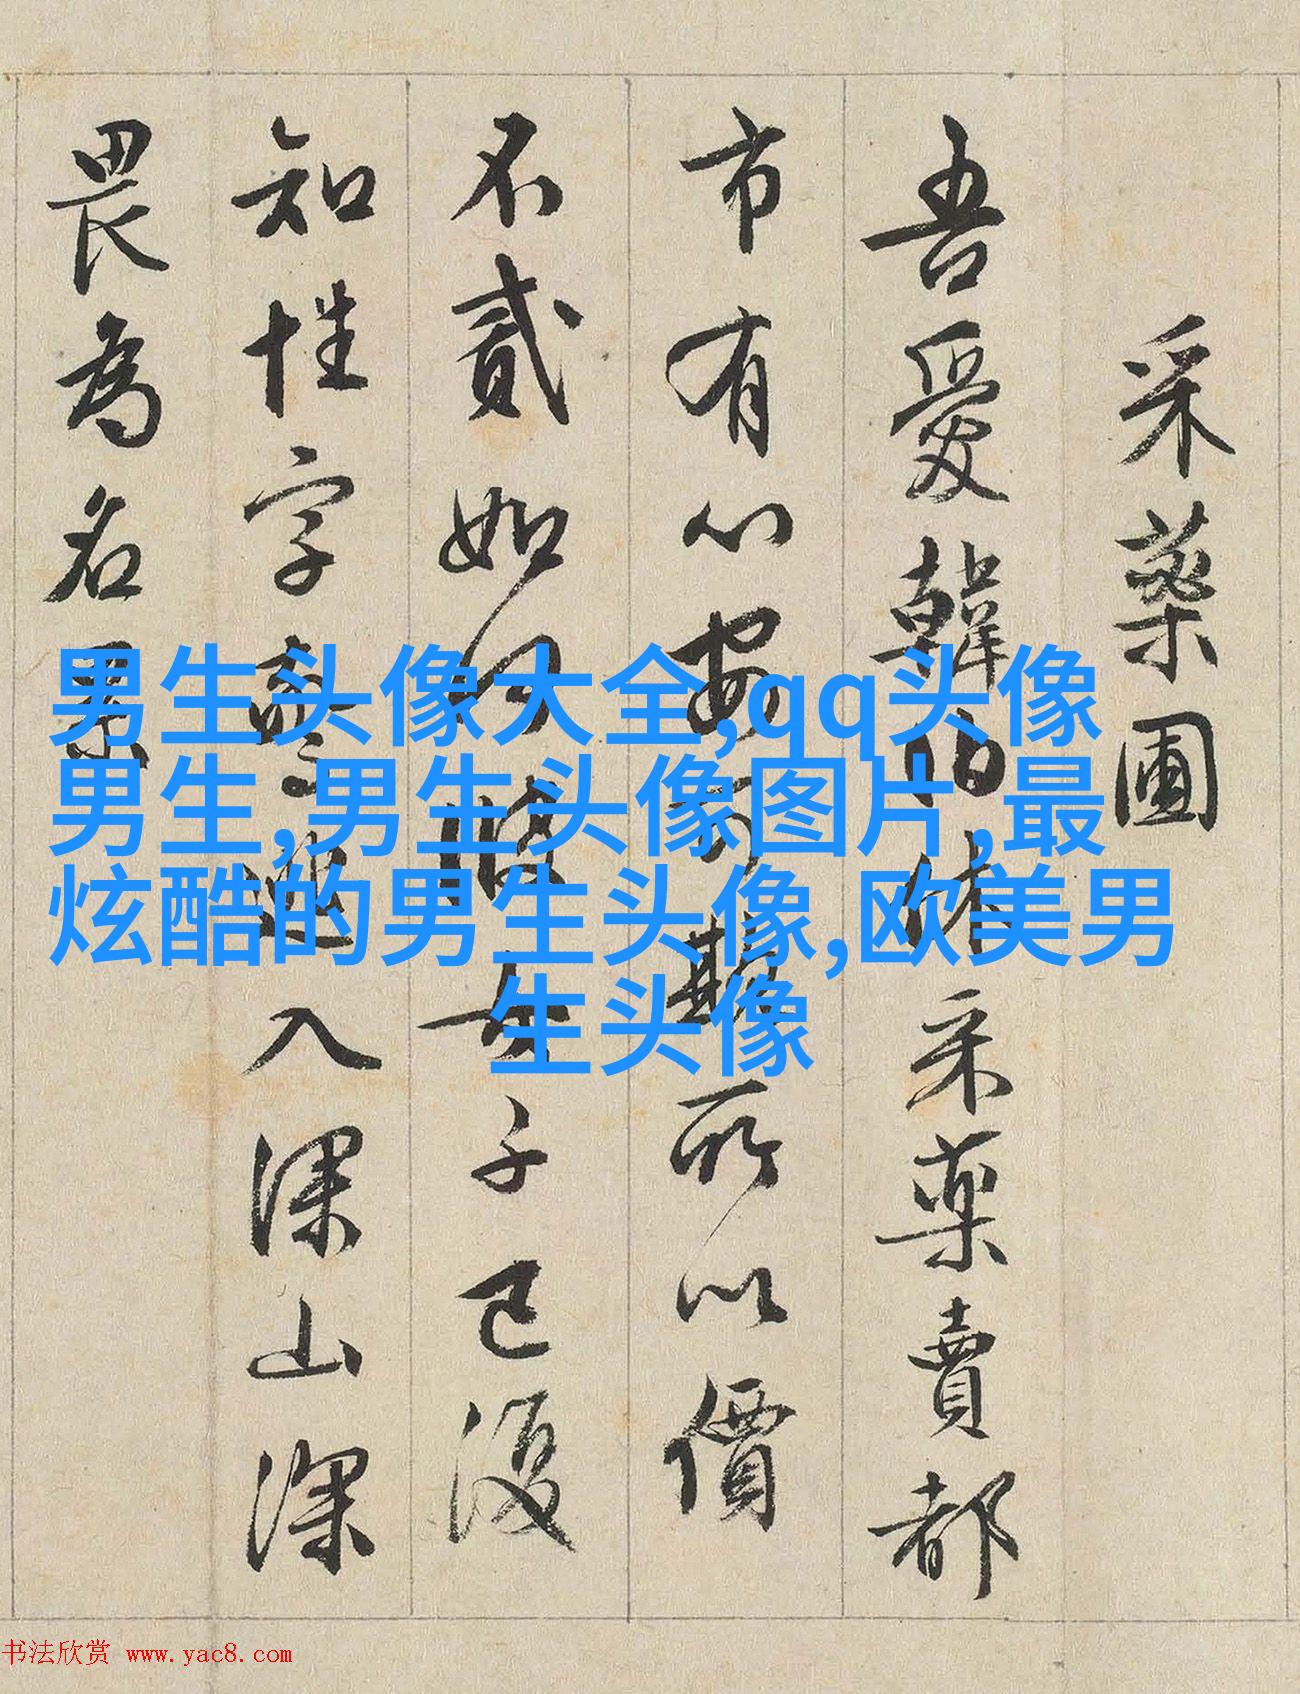 采藥圃
吾愛韓伯休采藥賣都
市有心安可所以價
不貳如何女子已復
知姓字入深山深
畏為名累
男生头像大全,qq头像
男生,男生头像图片,最
炫酷的男生头像,欧美男
生头像
书法欣赏 www.yac8.com